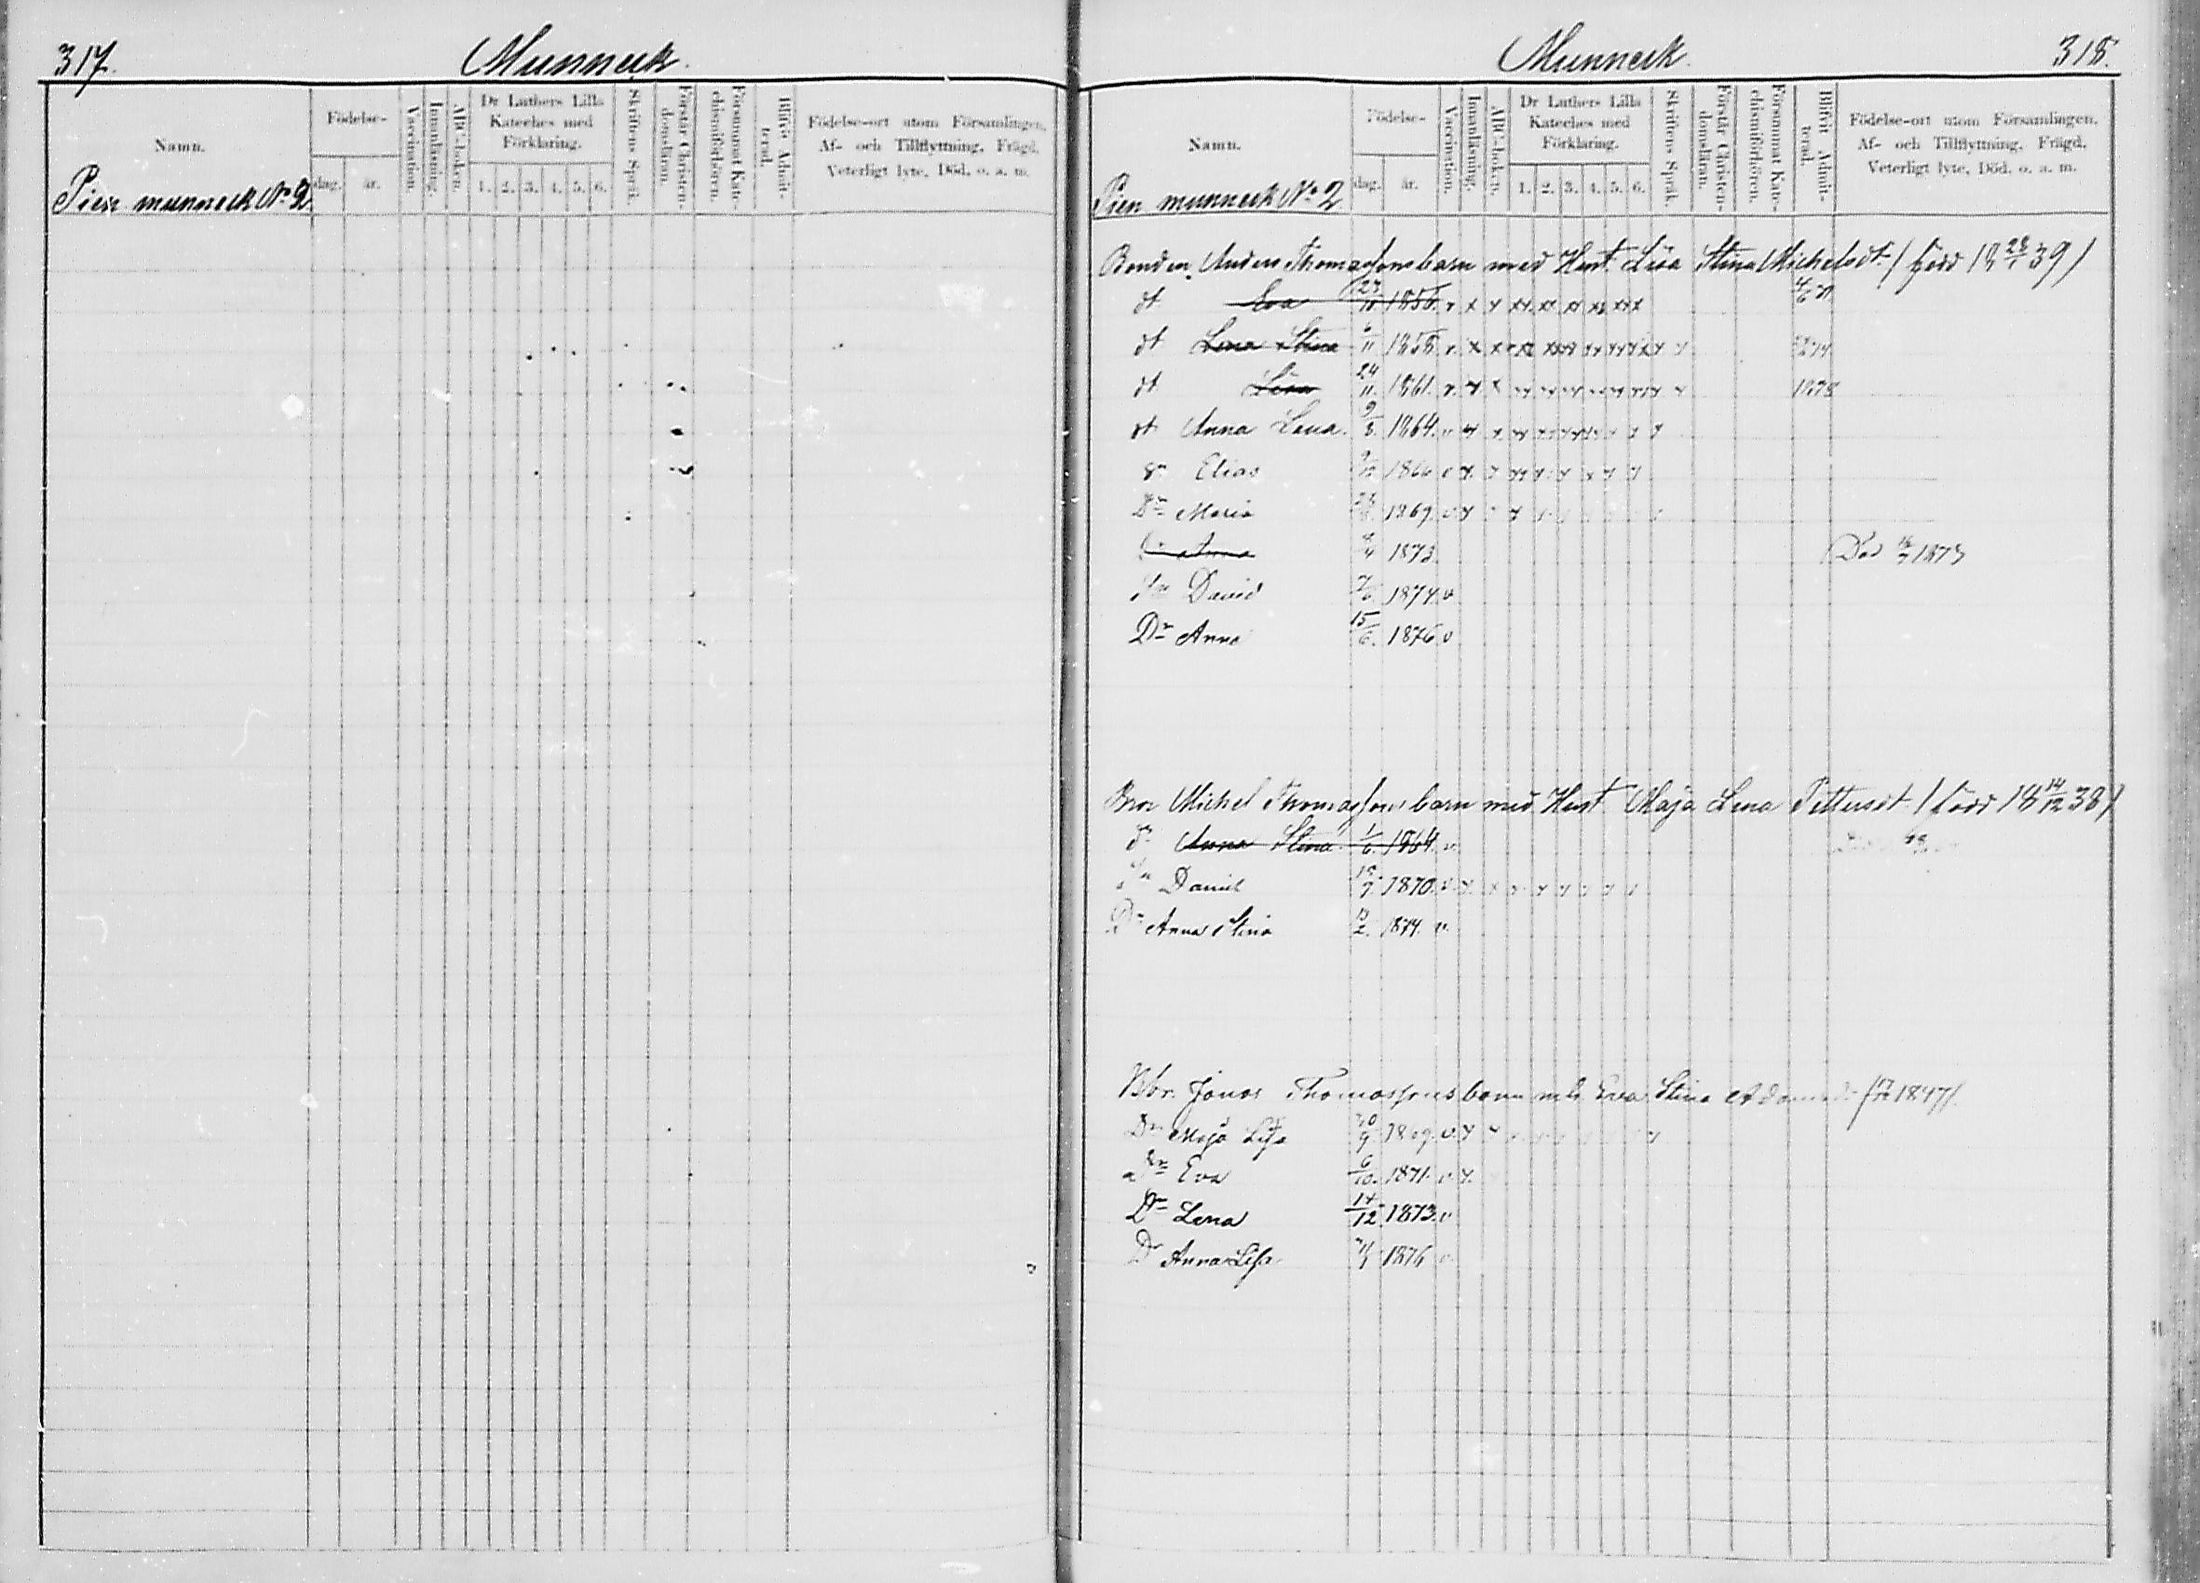 317.
Munneck.
Namn.
Födelse-
dag.
år.
Vaccination.
Innanläsning.
ABC-boken.
Dr Luthers Lilla Kateches med Förklaring.
1. 2. 3. 4. 5. 6.
Skriftens Språk.
Förstår Christendomsläran.
Försummat Katechismiförhören.
Blifvit Admitterad.
Födelse-ort utom Församlingen, Af- och Tillflyttning, Frägd, Veterligt lyte, Död, o. a. m.
Pien munneck No 2
Munneck.
318.
Namn.
Födelse-
dag.
år.
Vaccination.
Innanläsning.
ABC-boken.
Dr Luthers Lilla Kateches med Förklaring.
1. 2. 3. 4. 5. 6.
Skriftens Språk.
Förstår Christendomsläran.
Försummat Katechismiförhören.
Blifvit Admitterad.
Födelse-ort utom Församlingen, Af- och Tillflyttning, Frägd, Veterligt lyte, Död, o. a. m.
Pien munneck No 2
Bonden Anders Thomassons barn med Hust. Lisa Stina Michelsdt. (född 18 28/1 39)
dt Eva
dt Lena Stina 6/11 1858
dt Lisa 24/11 1861.
dt Anna Lena. 9/8 1864.
Sn Elias 1866
Dr Maria 1869.
Anna 1873. Död 1873
Sn David 1874. v
Dr Anna 15/6. 1876. v
Bror Michel Thomassons barn med Hust. Maja Lena Pettersdt (född 18 14/12 38)
Dr Anna Stina 1/6. 1864. v.
Sn Daniel 1870.
Dr Anna Stina 1874. v.
Bbr. Jonas Thomassons barn m. h. Eva Stina 1847).
Dr Maja Lisa
Dr Eva 6/10. 1871.
Dr Lena 14/12 1873. v
Dr Anna Lisa 1876